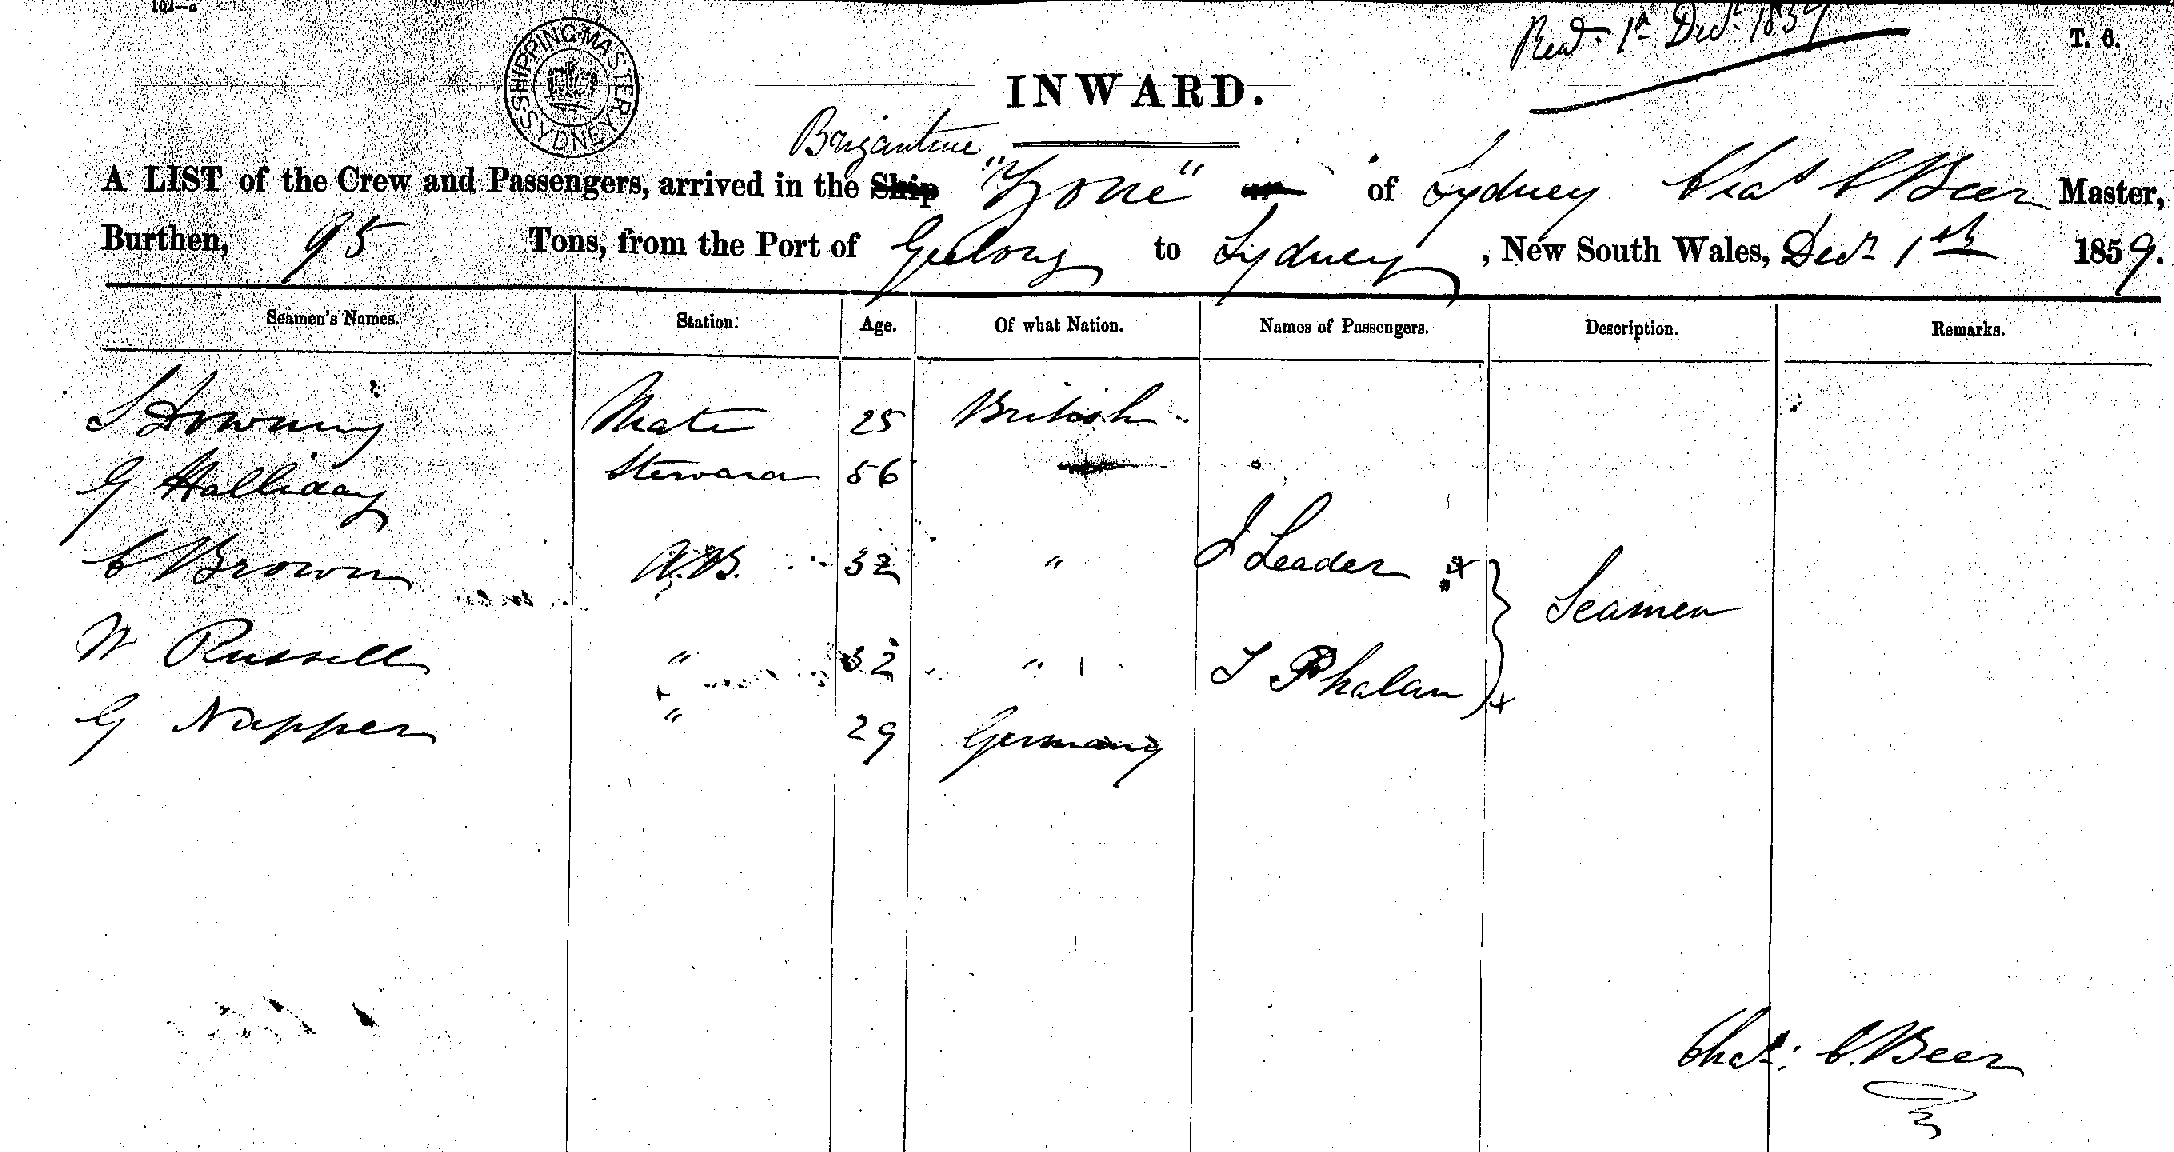 T. 6.
SHIPPING MASTER SYDNEY
Recd. 1st Decr. 1859
INWARD.
Brigantine
A LIST of the Crew and Passengers, arrived in the Ship "Zone" of Sydney Chas C Beer Master,
Burthen, 95 Tons, from the Port of Geelong to Sydney, New South Wales, Decr 1st 1859.
Seamen's Names. Station. Age. Of what Nation. Names of Passengers. Description. Remarks.
Mate 25 British
G Halliday Steward 56
C Brown A.B. 32 " J Leader x Seamen
W Russell " 32 " T Phalan x
G Napper " 29 Germany
Chas: C. Beer